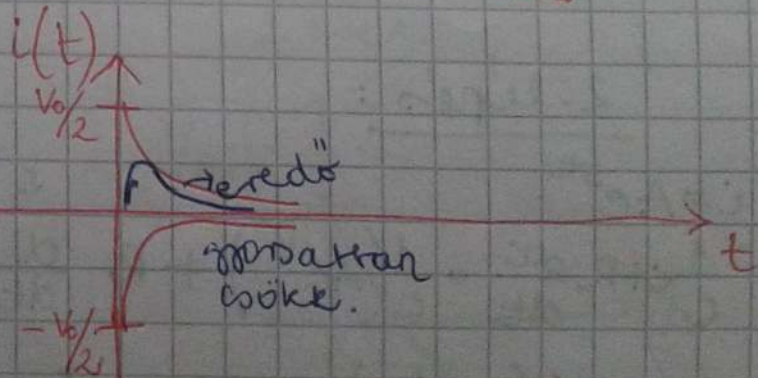 i(t)
V₀/2
eredő
gyorsabban
csökk.
t
-V₀/2